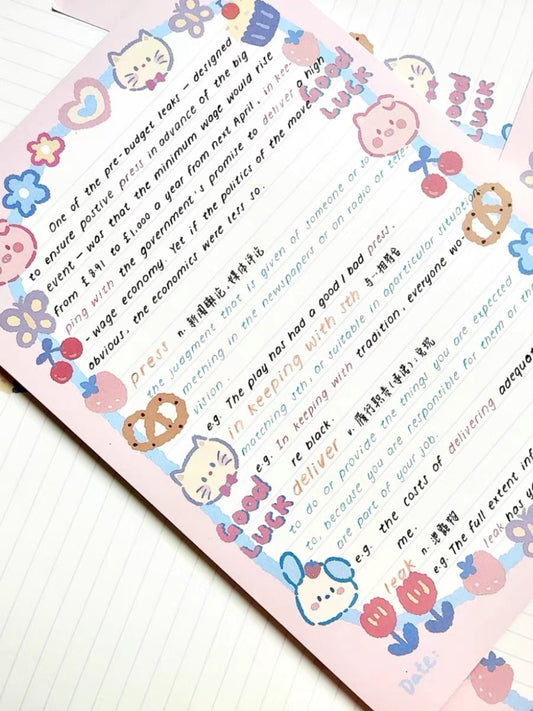 One of the pre-budget leaks – designed
to ensure postive press in advance of the big
event – was that the minimum wage would rise
from £891 to £1,000 a year from next April, in kee-
ping with the government's promise to deliver a high
-wage economy. Yet if the politics of the move
obvious, the economics were less so.
press n. 新闻报道，媒体评论
the judgment that is given of someone or so
mething in the newspapers or on radio or tele
vision
e.g. The play has had a good / bad press.
in keeping with sth 与…相符合
matching sth, or suitable in aparticular situation
e.g. In keeping with tradition, everyone wo
re black.
deliver v. 履行职责(承诺)，兑现
to do or provide the things you are expected
to, because you are responsible for them or th
are part of your job.
e.g. the costs of delivering adequa
me.
leak n. 泄露
e.g. The full extent inf
leak has y
GOOD
LUCK
GOOD
LUCK
GOOD
LUCK
Date: